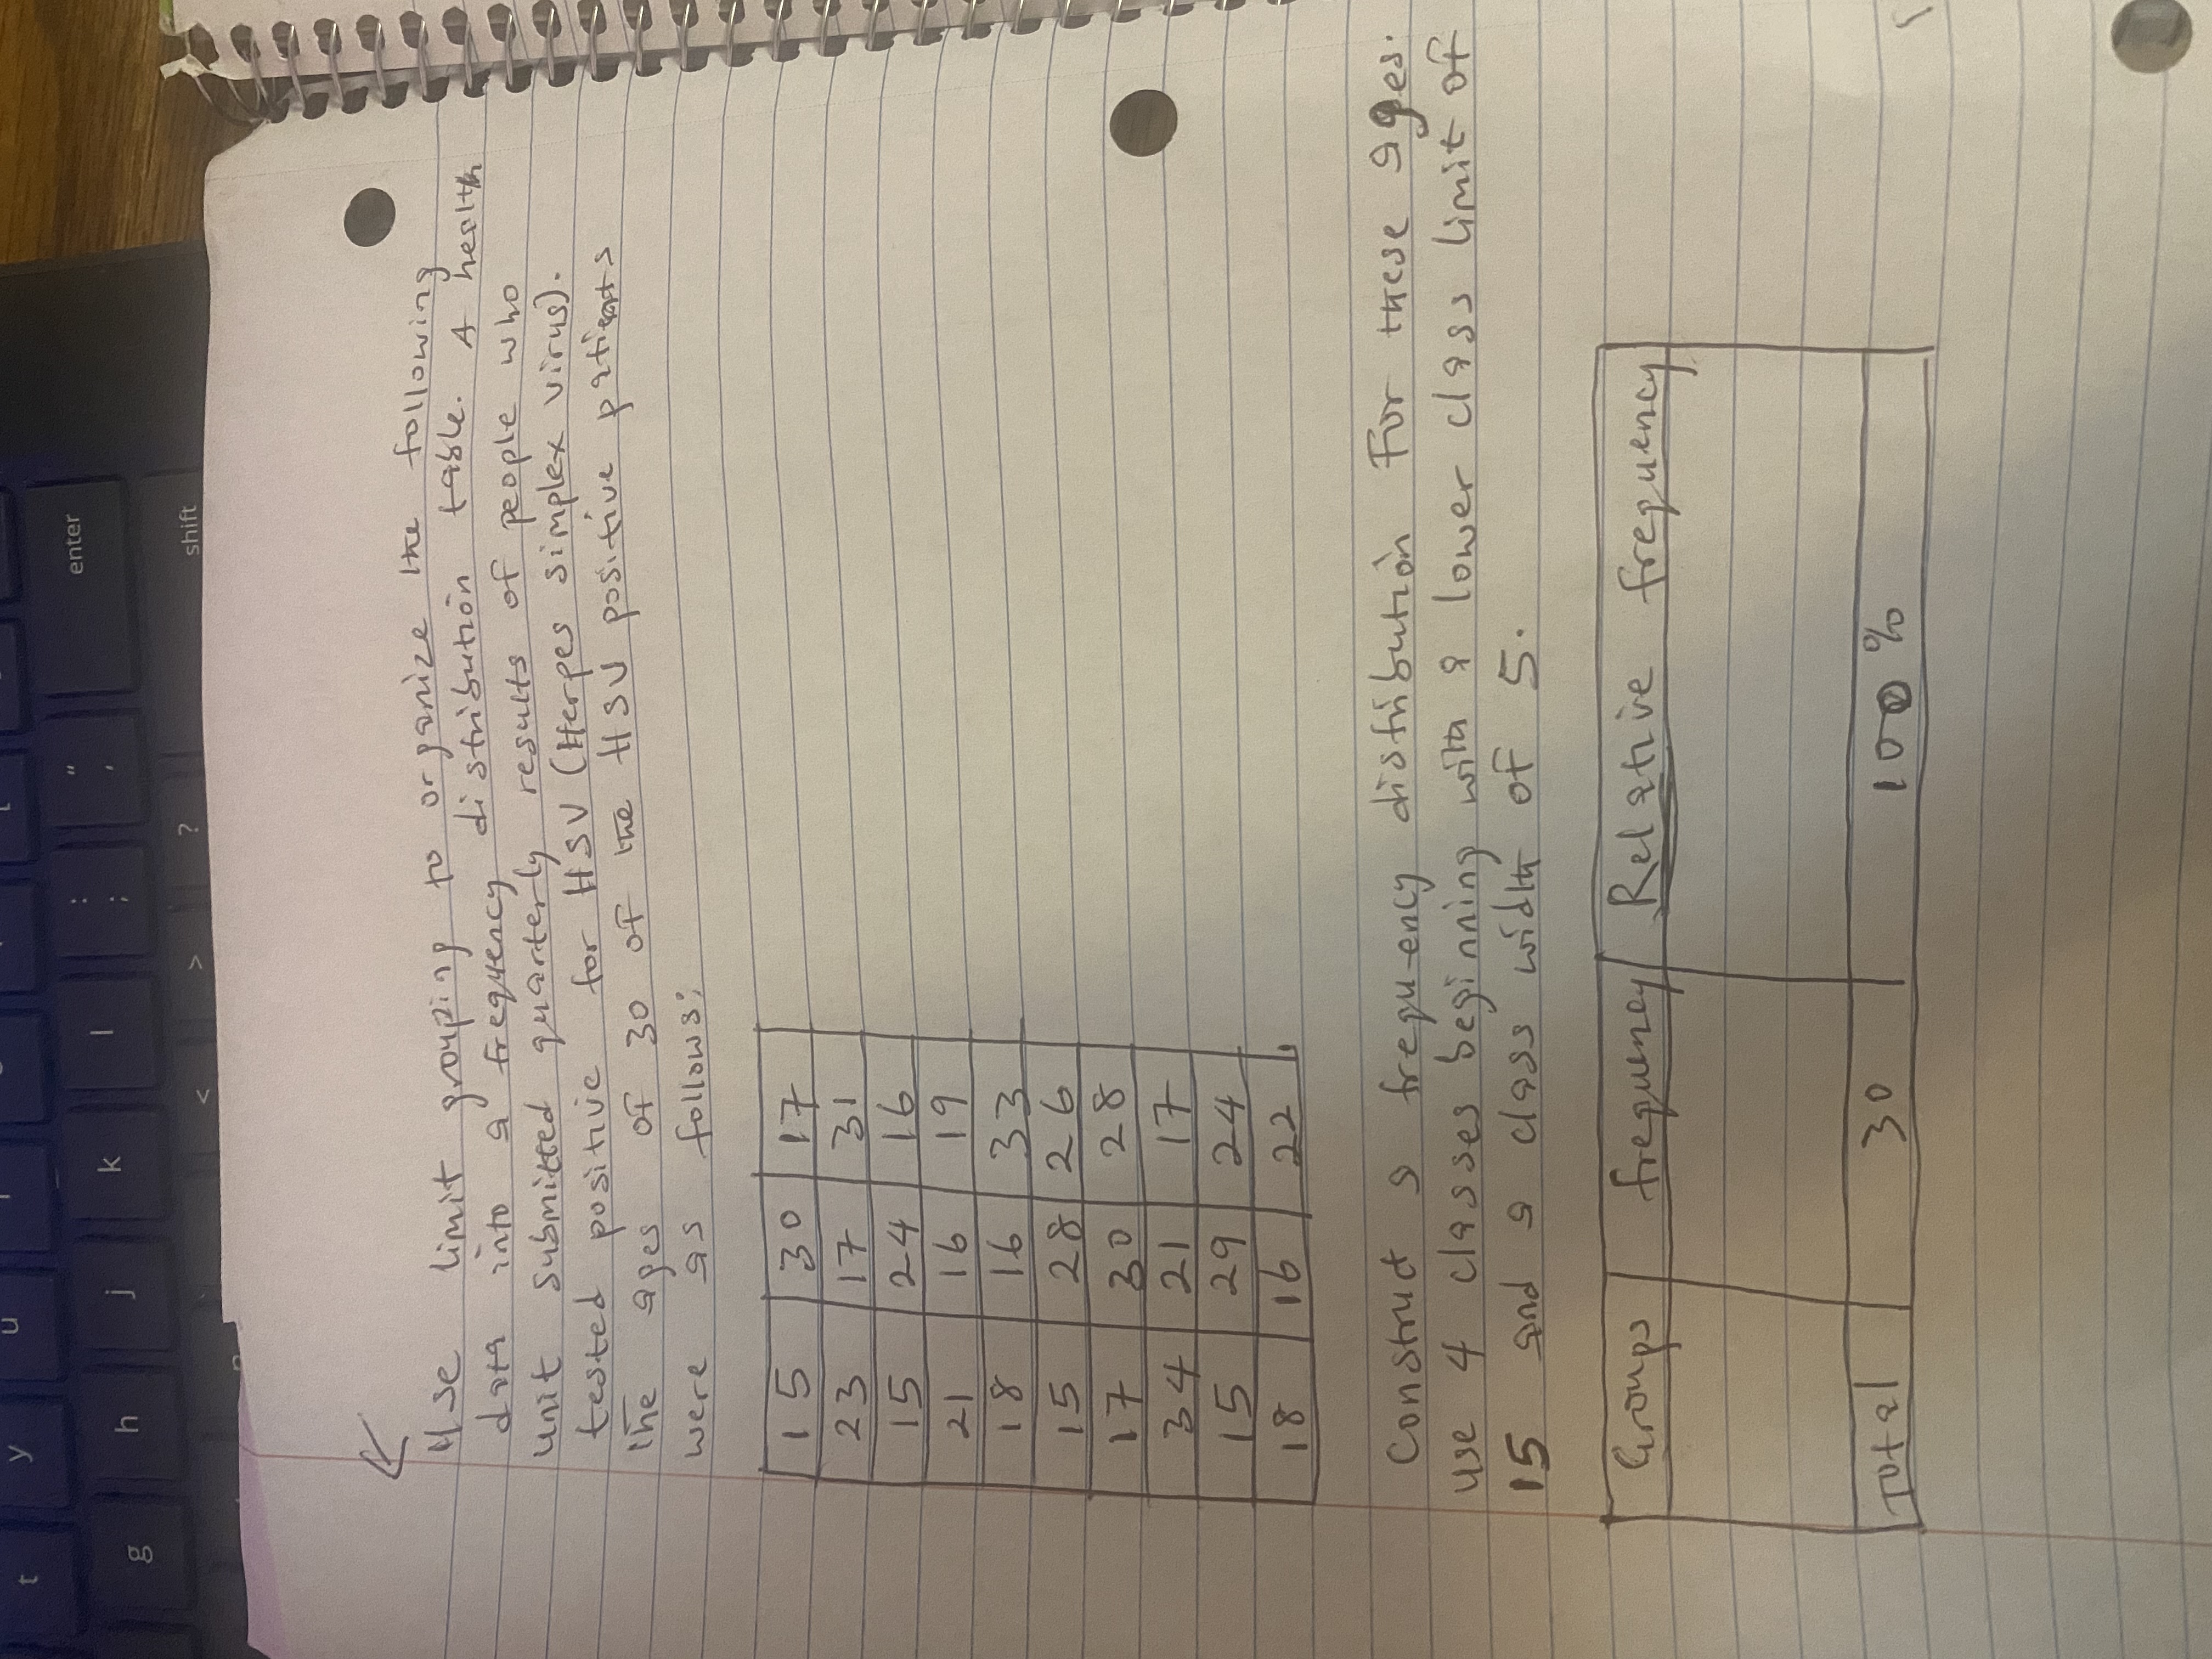 Use limit grouping to organize the following
data into a frequency distribution table. A health
unit submitted quarterly results of people who
tested positive for HSV (Herpes simplex virus).
The ages of 30 of the HSV positive patients
were as follows:
15 30 17
23 17 31
15 24 16
21 16 19
18 16 33
15 28 26
17 30 28
34 21 17
15 29 24
18 16 22
Construct a frequency distribution For these ages.
use 4 classes beginning with a lower class limit of
15 and a class width of 5.
Groups frequency Relative frequency
Total 30 100%
enter
shift
" '
: ;
?
l
>
<
k
j
h
g
u
y
t